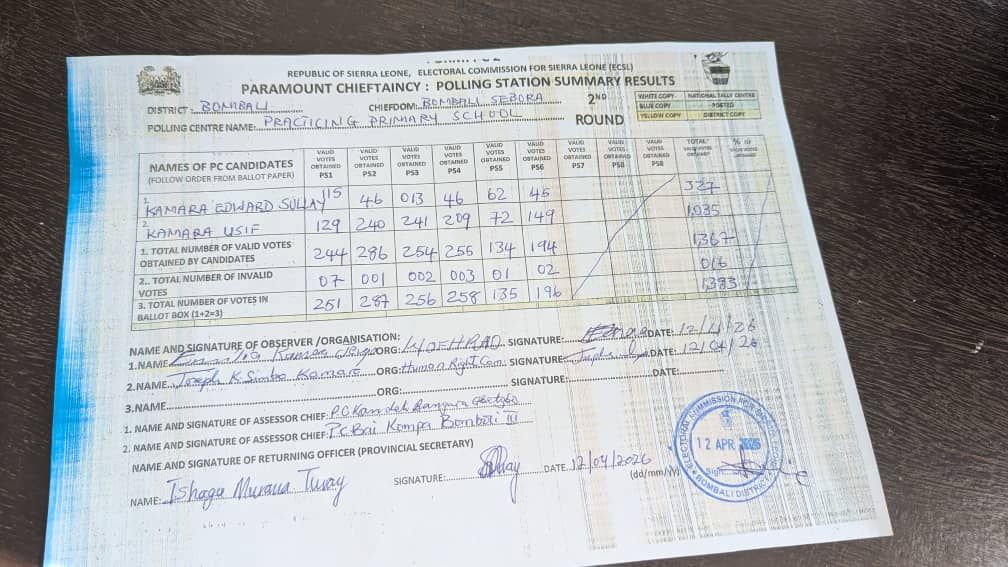 REPUBLIC OF SIERRA LEONE, ELECTORAL COMMISSION FOR SIERRA LEONE (ECSL)
PARAMOUNT CHIEFTAINCY : POLLING STATION SUMMARY RESULTS
DISTRICT: BOMBALI CHIEFDOM: BOMBALI SEBORA 2ND ROUND
WHITE COPY NATIONAL TALLY CENTRE
BLUE COPY POSTED
YELLOW COPY DISTRICT COPY
POLLING CENTRE NAME: PRACTICING PRIMARY SCHOOL
NAMES OF PC CANDIDATES (FOLLOW ORDER FROM BALLOT PAPER) VALID VOTES OBTAINED PS1 VALID VOTES OBTAINED PS2 VALID VOTES OBTAINED PS3 VALID VOTES OBTAINED PS4 VALID VOTES OBTAINED PS5 VALID VOTES OBTAINED PS6 VALID VOTES OBTAINED PS7 VALID VOTES OBTAINED PS8 VALID VOTES OBTAINED TOTAL VALID VOTES OBTAINED % OF VALID VOTES OBTAINED
1. KAMARA EDWARD SULLAY 115 46 013 46 62 45 327
2. KAMARA USIF 129 240 241 209 72 149
1. TOTAL NUMBER OF VALID VOTES OBTAINED BY CANDIDATES 244 286 254 255 134 194 1367
2.. TOTAL NUMBER OF INVALID VOTES 07 001 002 003 01 02 016
3. TOTAL NUMBER OF VOTES IN BALLOT BOX (1+2=3) 251 287 256 258 135 196 1383
NAME AND SIGNATURE OF OBSERVER /ORGANISATION:
1.NAME Kamara ORG: SIGNATURE: DATE: 12/4/26
2.NAME Joseph K Simba Kamara ORG: Human Right Com. SIGNATURE: DATE: 12/04/26
3.NAME ORG: SIGNATURE: DATE:
1. NAME AND SIGNATURE OF ASSESSOR CHIEF: P.C Kandeh
2. NAME AND SIGNATURE OF ASSESSOR CHIEF: P.C Bai Kompa Bombali III
NAME AND SIGNATURE OF RETURNING OFFICER (PROVINCIAL SECRETARY)
NAME: SIGNATURE: DATE 12/04/2026 (dd/mm/yy)
ELECTORAL COMMISSION FOR
12 APR 2026
BOMBALI DISTRICT